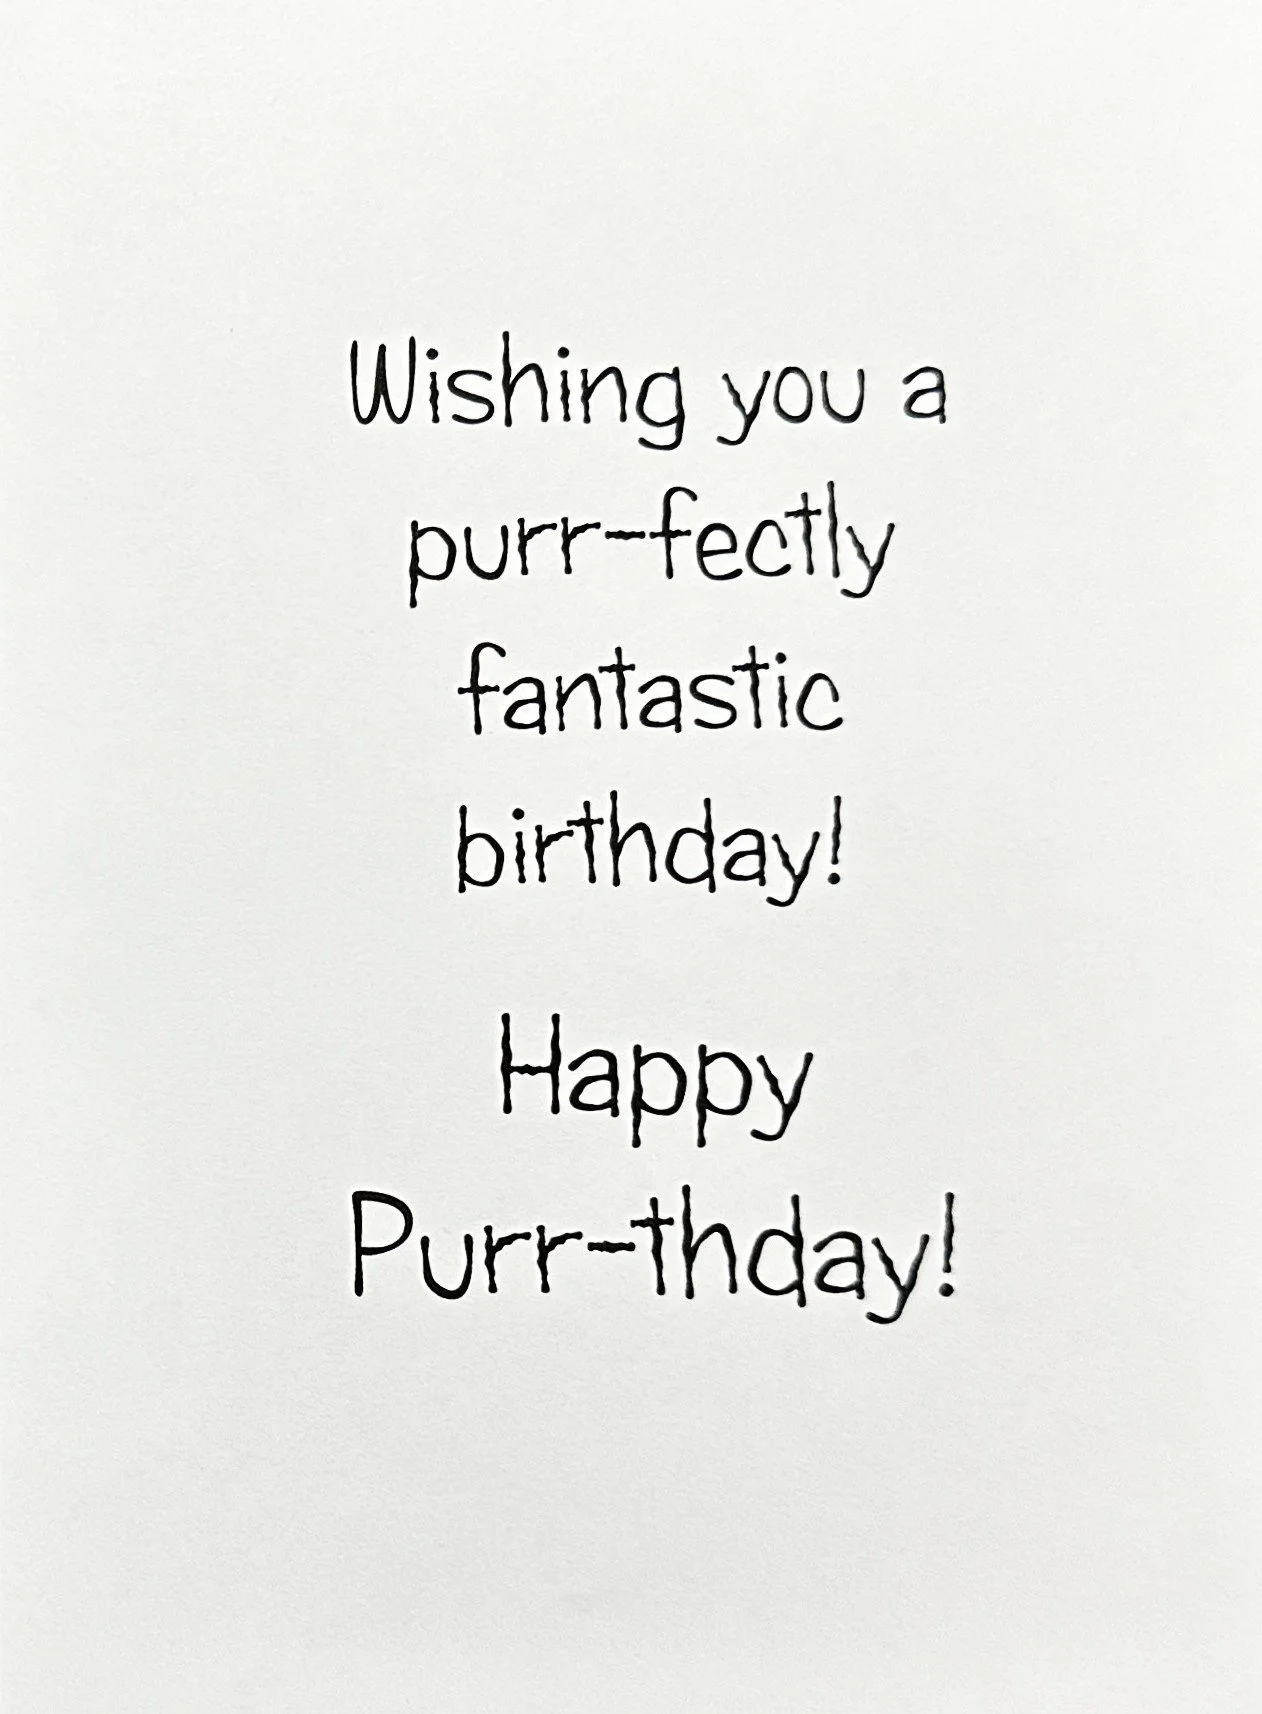 Wishing you a
purr-fectly
fantastic
birthday!
Happy
Purr-thday!